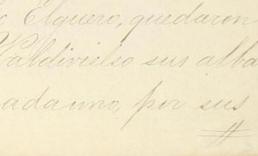 Elguero, quedaron
Valdivielso sus alba
ada uno, por sus